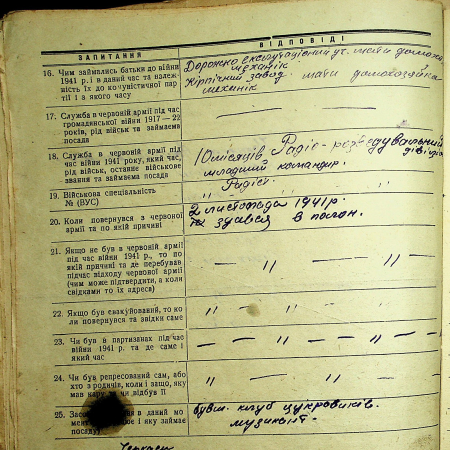 ЗАПИТАННЯ
ВІДПОВІДІ
16. Чим займались батьки до війни
1941 р. і в даний час та належ-
ність їх до комуністичної пар-
тії і з якого часу
Дорожно експлутаційний уч. мати домохаз
механік
Кірпічний завод. мати домохозяйка
механік
17. Служба в червоній армії під час
громадянської війни 1917—22
років, рід військ та займаєма
посада
18. Служба в червоній армії під
час війни 1941 року, який час,
рід військ, останнє військове
звання та займаєма посада
10 місяців Радіо-розвєдувальний
дивізіон
младший командир.
19. Військова спеціальність
№ (ВУС)
Радіст
20. Коли повернувся з червоної
армії та по якій причині
2 листопада 1941 р.
здався в полон.
21. Якщо не був в червоній армії
під час війни 1941 р., то по
якій причині та де перебував
підчас відходу червоної армії
(чим може підтвердити, а коли
свідками то їх адреса)
— " — " —
22. Якщо був евакуйований, то ко-
ли повернувся та звідки саме
" — " "
23. Чи був в партизанах під час
війни 1941 р. та де саме і
який час
— " — " — " —
24. Чи був репресований сам, або
хто з родичів, коли і защо, яку
мав кару чи відбув її
" — " —
25. в даний мо-
мент і яку займає
посаду
бувш. клуб цукровиків.
музикант.